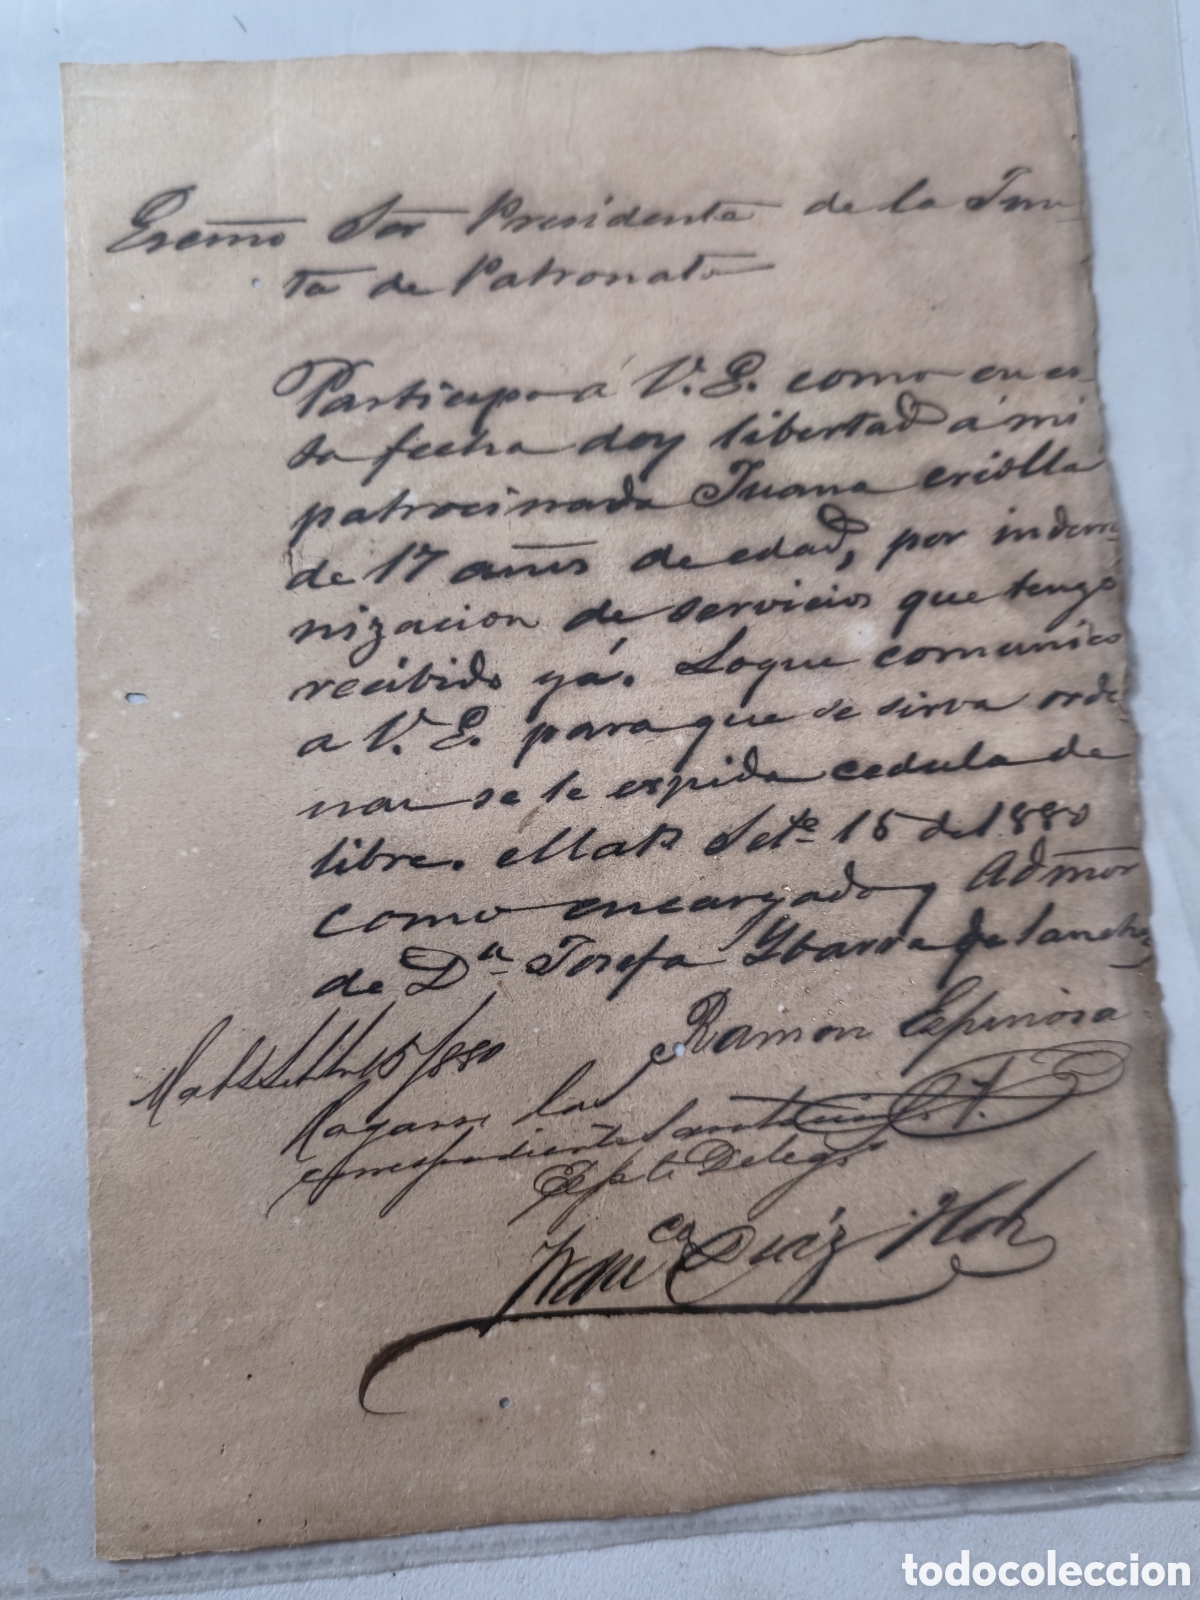 Escmo Sor Presidente de la Jun
ta de Patronato
Participo á V. E. como en es
ta fecha doy libertad á mi
patrocinada Juana criolla
de 17 años de edad, por indem
nizacion de servicios que tengo
recibido yá. Loque comunico
a V. E. para que se sirva orde
nar se le espida cedula de
libre. Matzs Sete 15 de 1880
como encargado y Admor
de Da Josefa Ybarra de Sanchez
Ramon Espinosa
15/880
Hagase la
correspondiente
Delego
Franco Diáz
todocoleccion